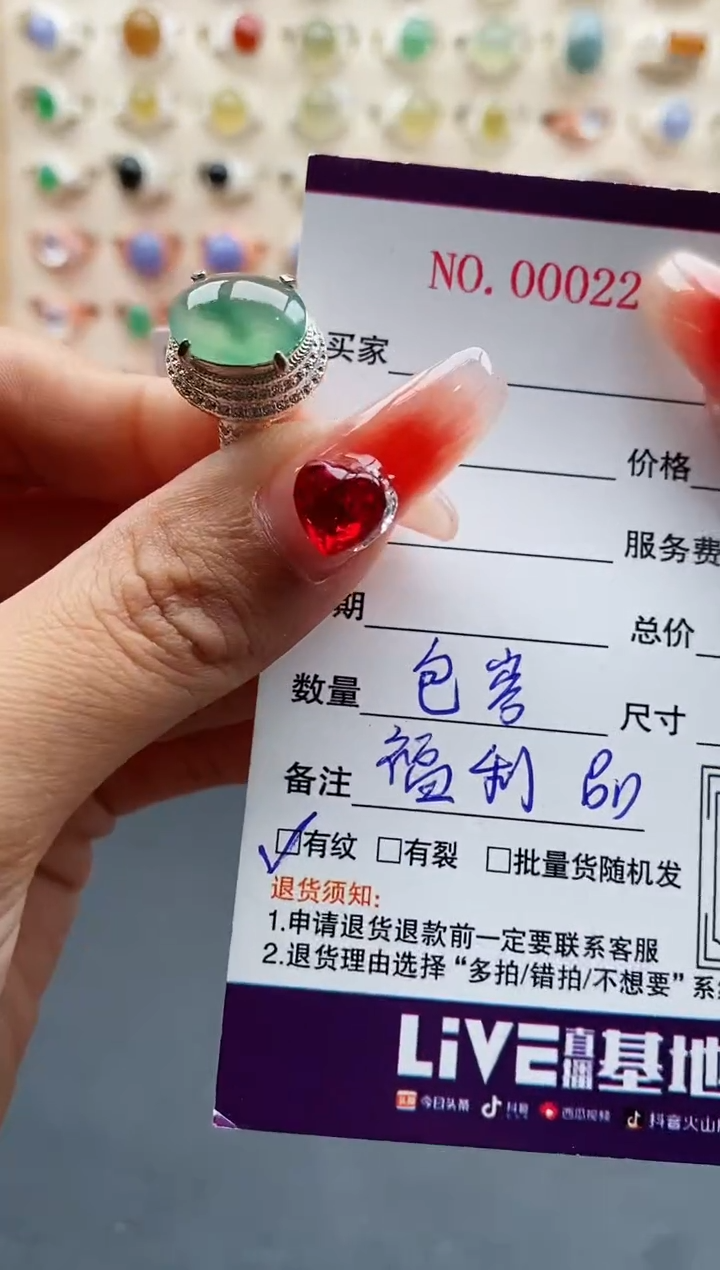 NO. 00022
买家
价格
服务费
期 总价
数量 尺寸
备注 福利品
有纹 有裂 批量货随机发
退货须知:
1.申请退货退款前一定要联系客服
2.退货理由选择“多拍/错拍/不想要”系
LiVE直播基地
今日头条 抖音 西瓜视频 抖音火山